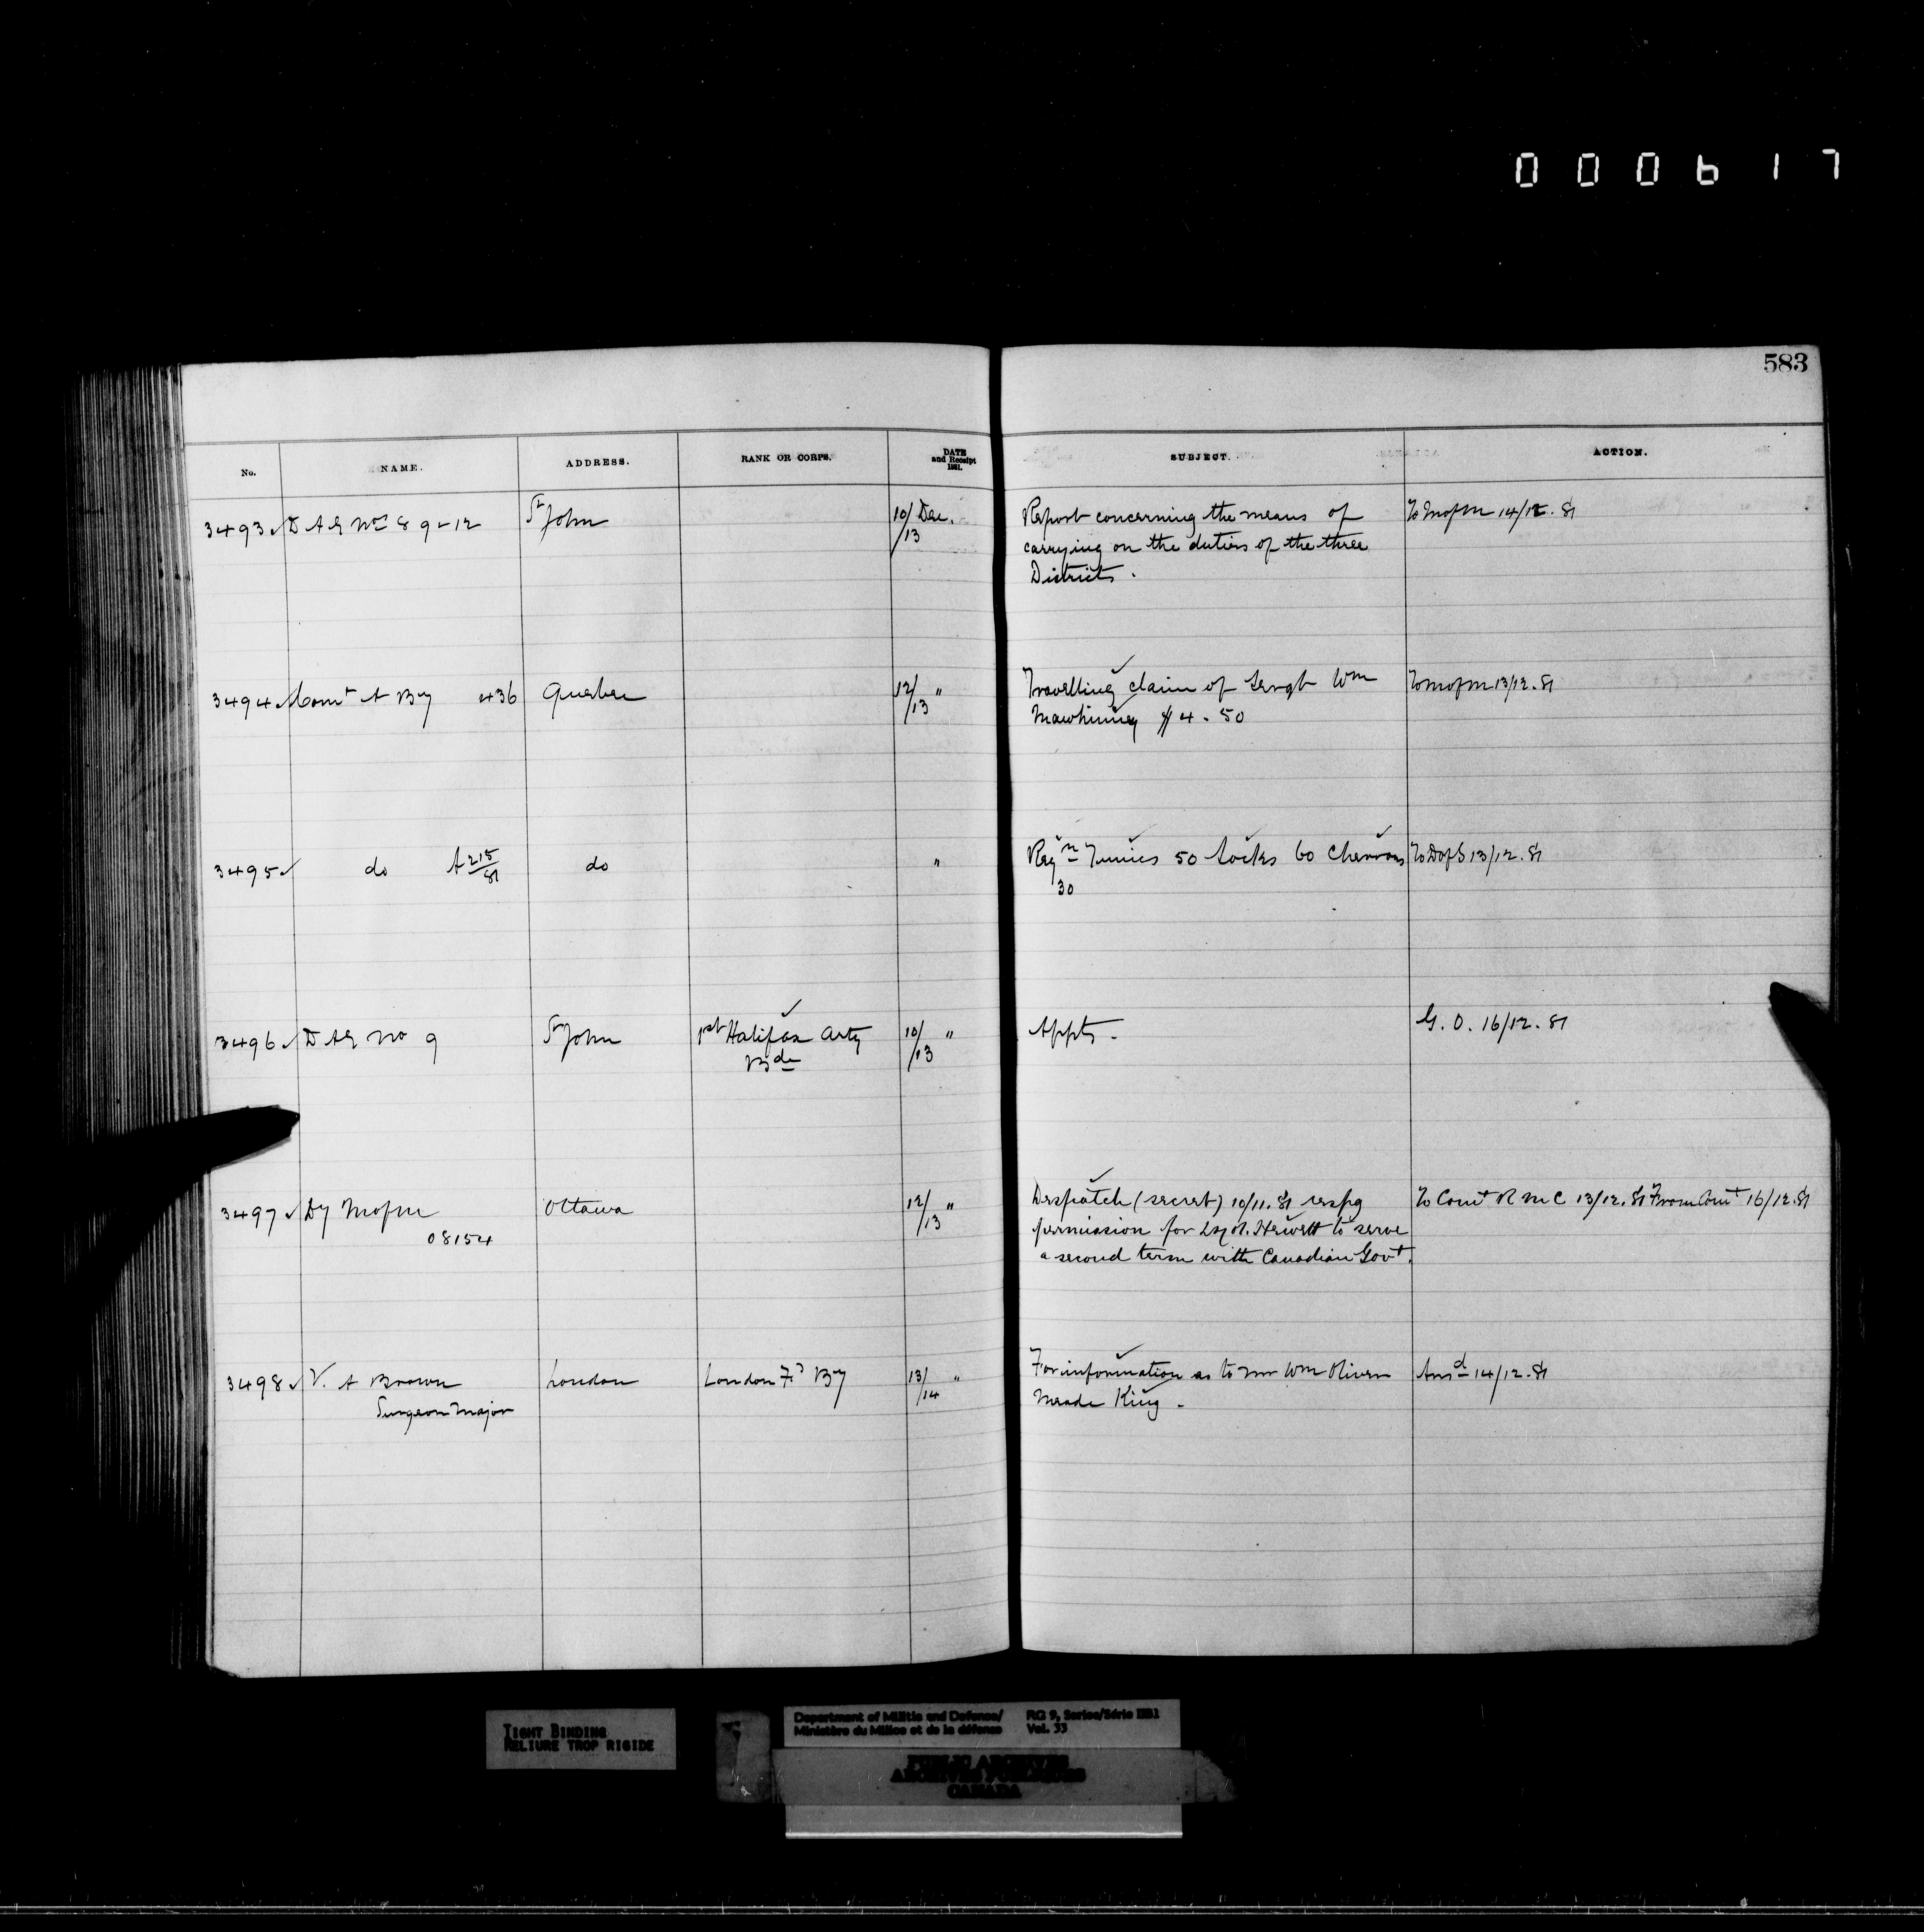 000617
583
No. NAME. ADDRESS. RANK OR CORPS. DATE and Receipt 1881. SUBJECT. ACTION.
3493 D A G Nos 8 9 & 12 St John 10/13 Dec. Report concerning the means of To M of M 14/12.81
carrying on the duties of the three
Districts.
3494 Comt A By 436 Quebec 12/13 " Travelling claim of Sergt Wm To M of M 13/12.81
Mawhinney $4.50
3495 do A 215/81 do " Reqn Tunics 50 Socks 60 Chevrons To D of S 13/12.81
30
3496 D A G No 9 St John 1st Halifax Arty 10/13 " Appts. G. O. 16/12.81
Bde
3497 Dy M of M Ottawa 12/13 " Despatch (secret) 10/11.81 respg To Comt R M C 13/12.81 From Comt 16/12.81
08154 permission for Lt Col. Hewett to serve
a second term with Canadian Govt.
3498 V. A Brown London London Fd By 13/14 " For information as to Mr Wm Oliver Ansd 14/12.81
Surgeon Major Meade King.
TIGHT BINDING
RELIURE TROP RIGIDE
Department of Militia and Defence/ RG 9, Series/Série IIB1
Ministère du Milice et de la défense Vol. 33
PUBLIC ARCHIVES
ARCHIVES PUBLIQUES
CANADA